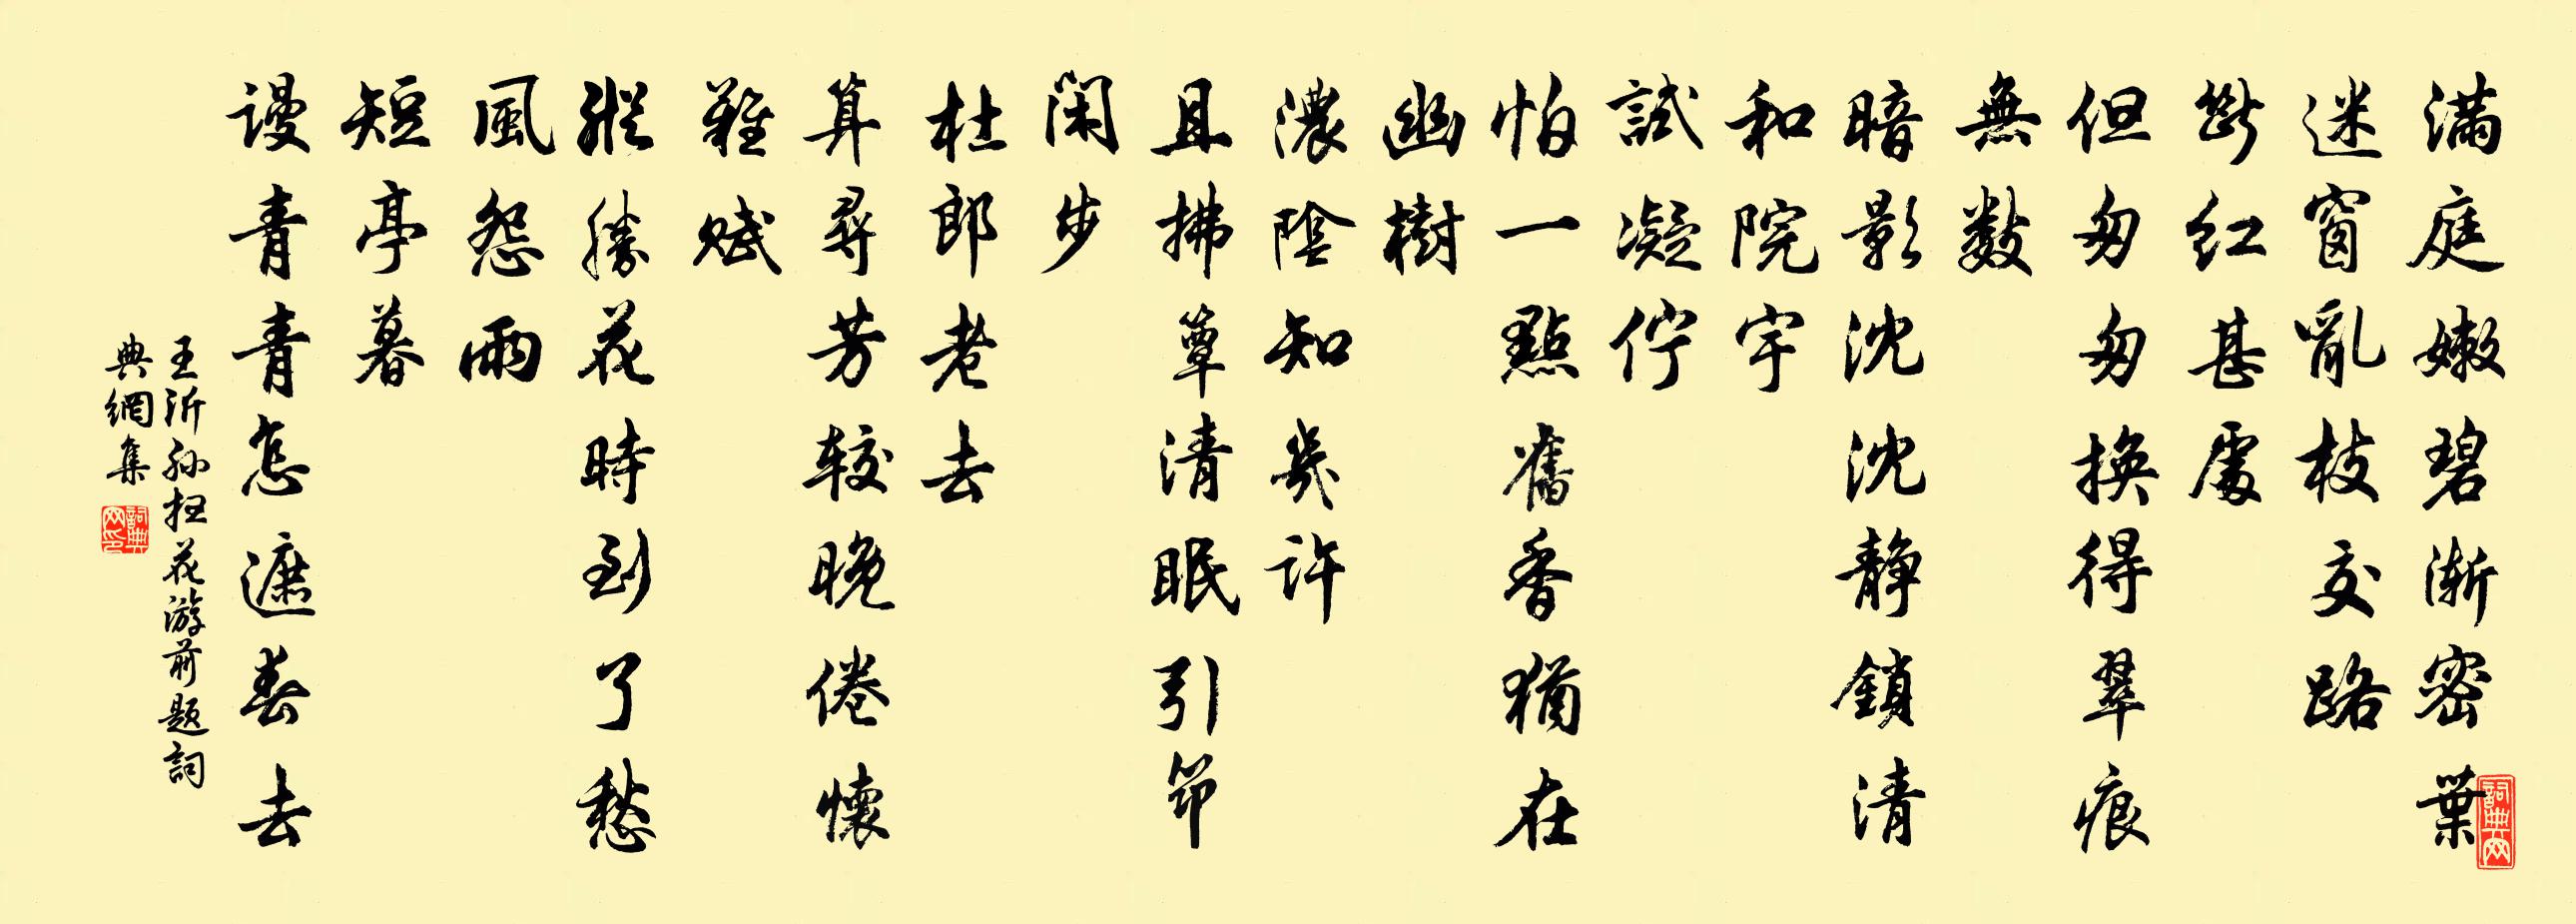 滿庭嫩碧漸密葉
迷窗亂枝交路
斷紅甚處
但匆匆換得翠痕
無數
暗影沈沈靜鎖清
和院宇
試凝佇
怕一點舊香猶在
幽樹
濃陰知幾許
且拂簟清眠引筇
閑步
杜郎老去
算尋芳較晚倦懷
難賦
縱勝花時到了愁
風怨雨
短亭暮
謾青青怎遮春去
王沂孫掃花游前題詞
典網集
詞典网
詞典网印